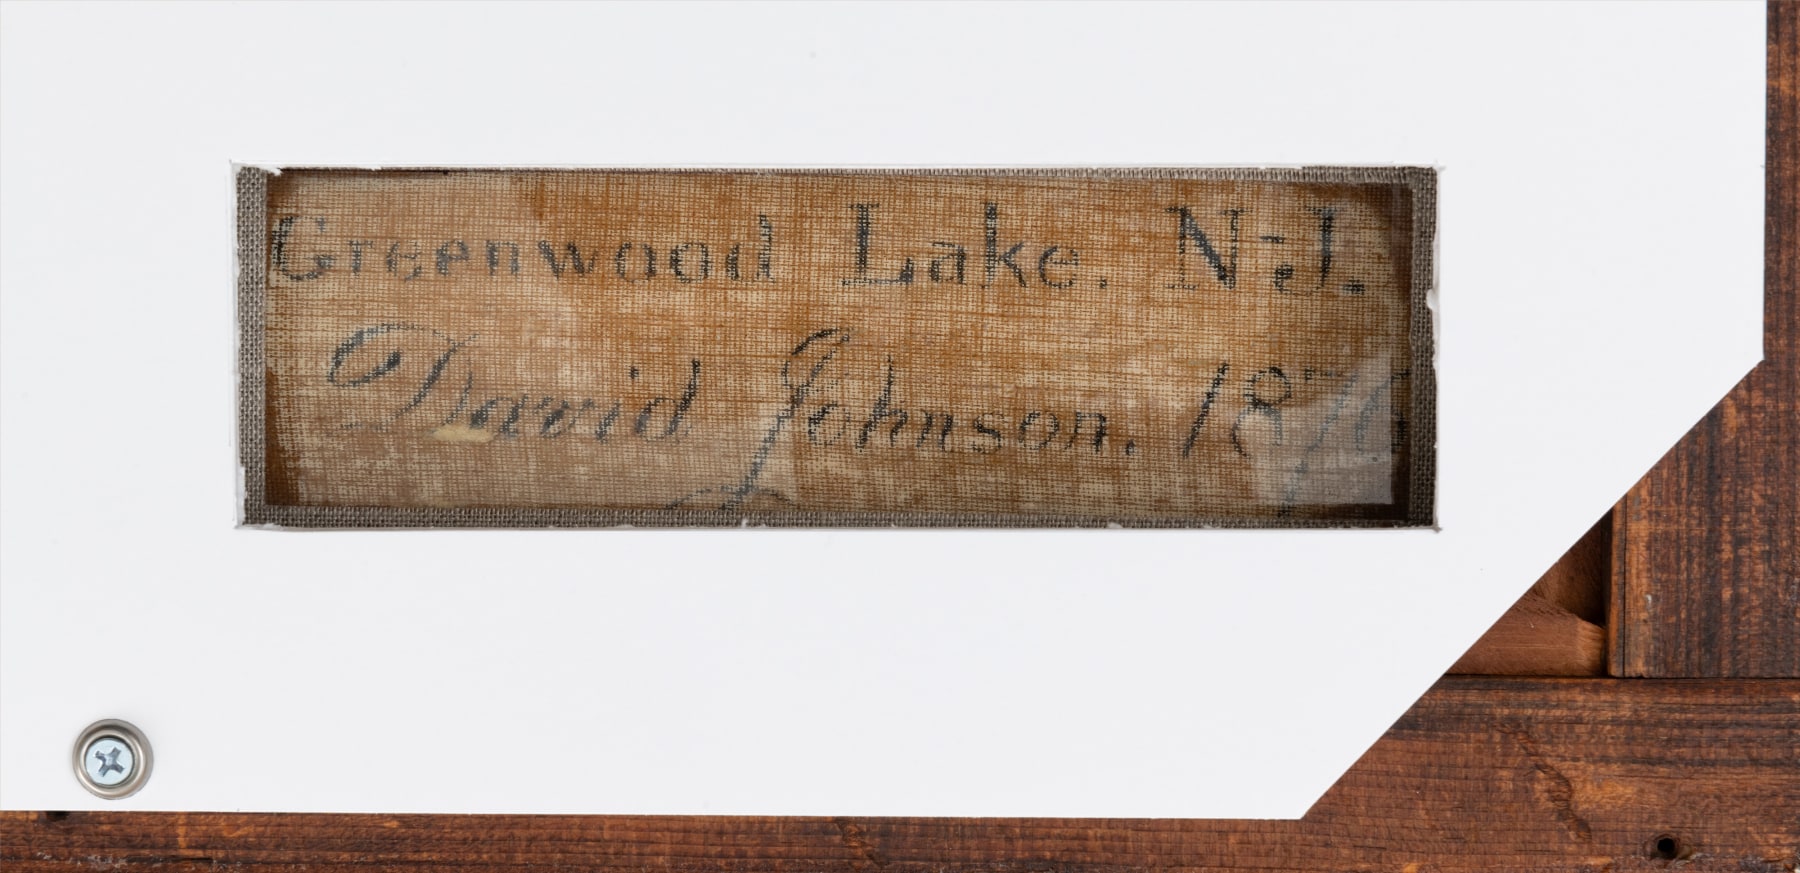 Greenwood Lake. N.J.
David Johnson.